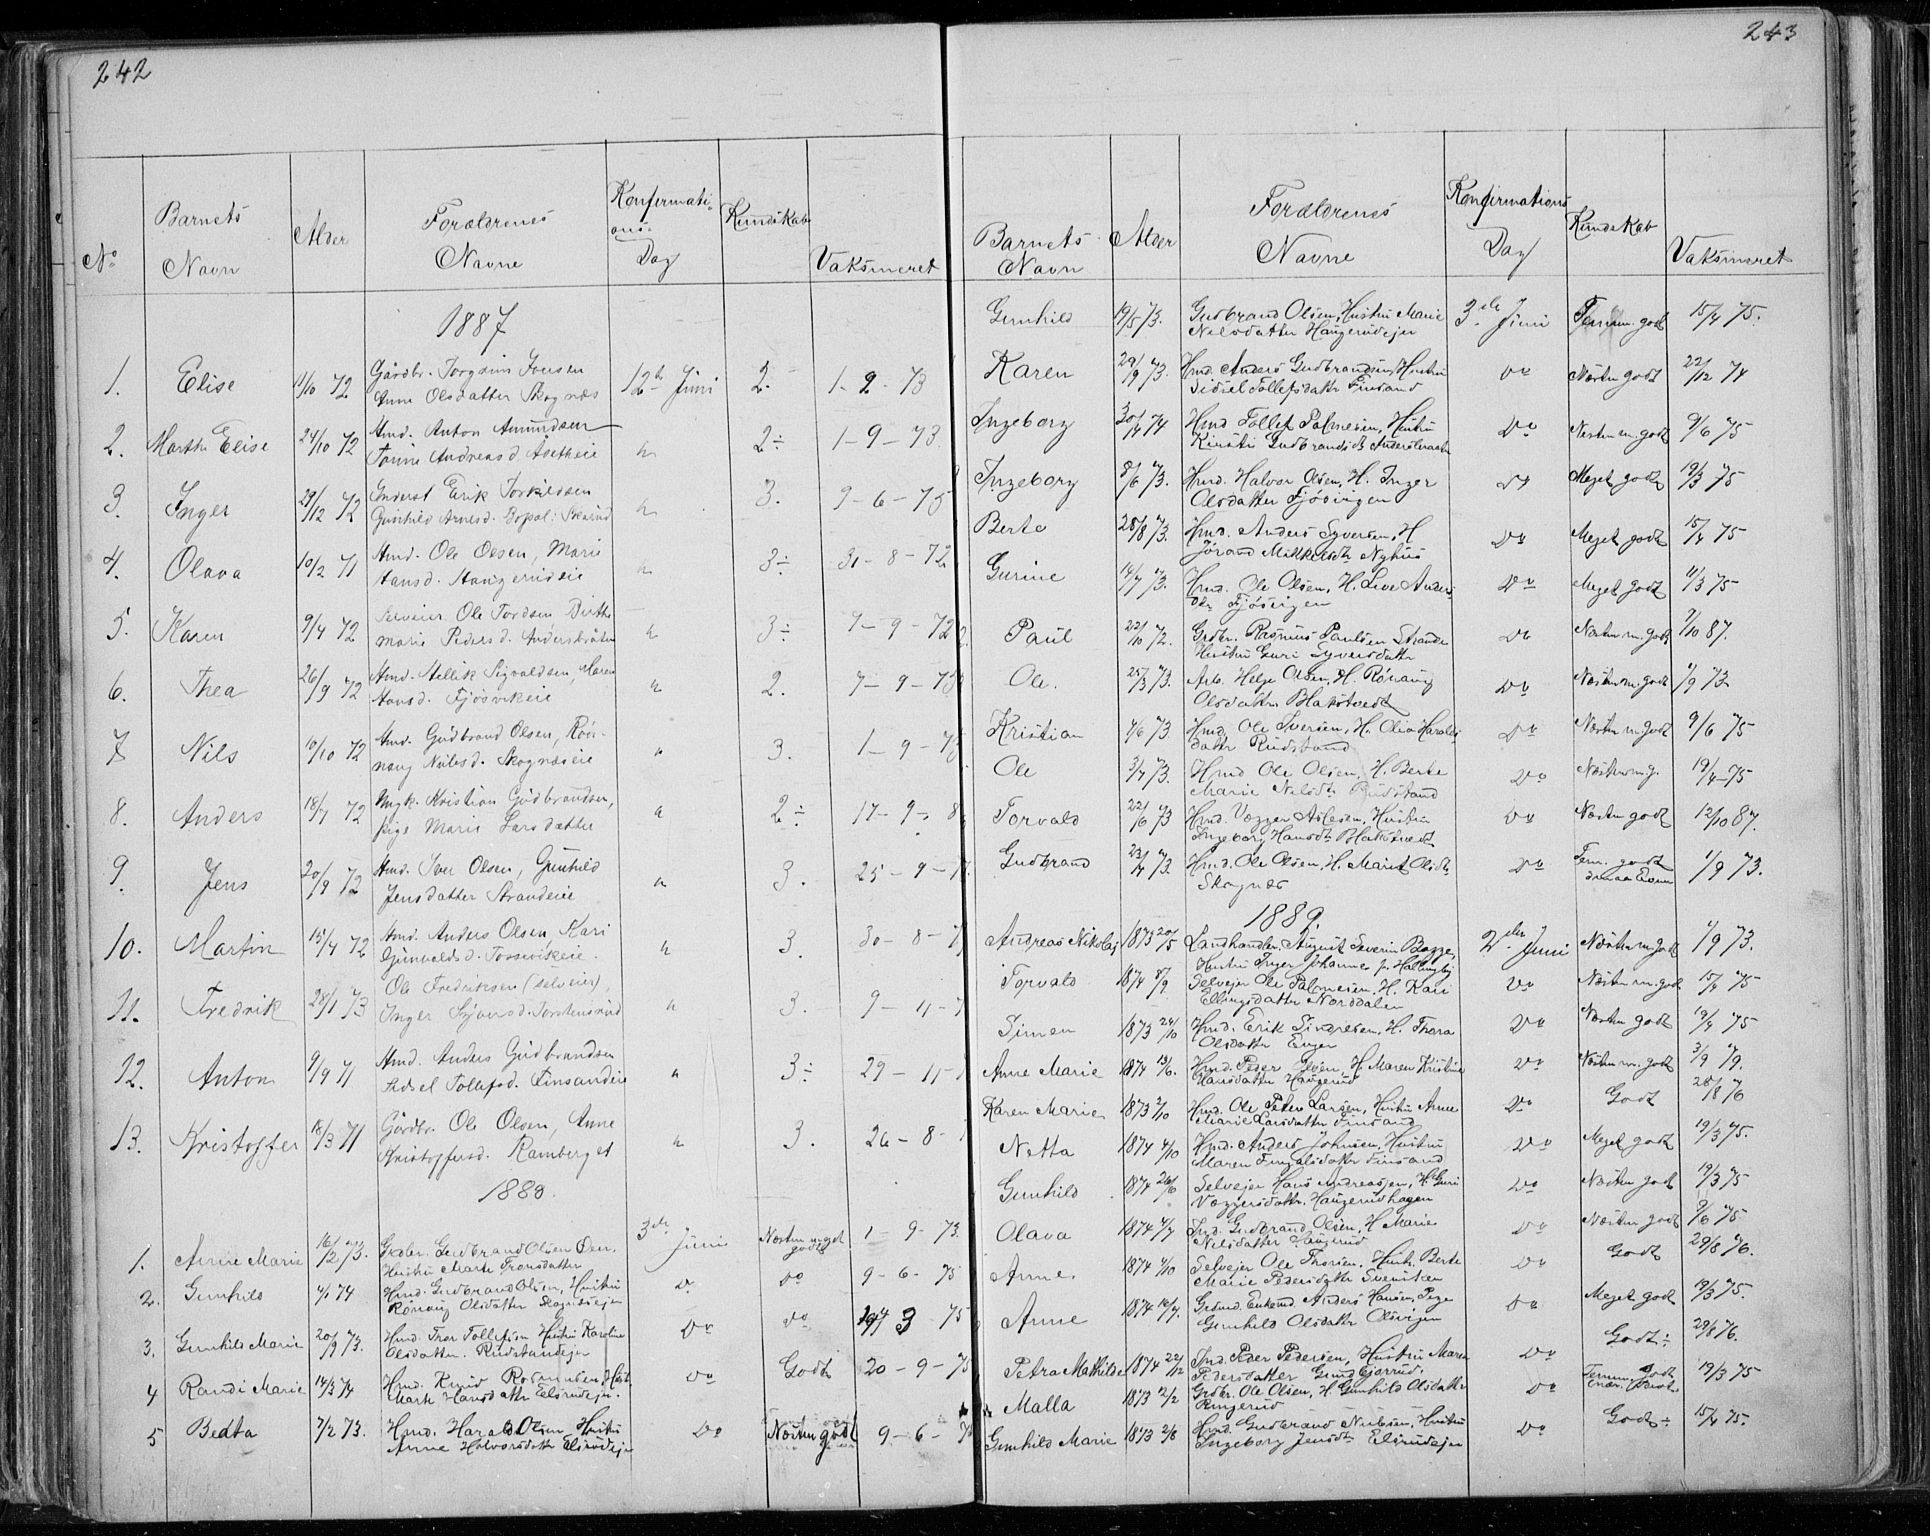 242
No
Barnets Navn
Alder
Forældrenes Navne
Konfirmations-Dag
Kundskab
Vaksineret
1887
1. Elise 11/10 72 Gårdbr. Torgrim Iversen 12te Juni 2. 1-9-73
Anne Olsdatter Skognæs
2. Marthe Elise 24/10 72 Hmd. Anton Amundsen 2÷ 1-9-73.
Andreasd.
3. Inger 29/12 72 Inderst Erik Torkildsen 3. 9-6-75
Gunhild Arnesd.
4. Olava 10/2 71 Hmd. Ole Olsen, Marie 3÷ 31-8-72
Hansd. Haugerudeie
5. Karen 9/4 72 Ole Tordsen, Birthe 3÷ 7-9-72
Marie Pedersd. Andersbråten
6. Thea 26/9 72 Hmd. Sigvaldsen, Maren 2. 7-9-75
Hansd. Fjøsvikeie
7 Nils 10/10 72 Hmd. Gudbrand Olsen, Røn- 3. 1-9-7
naug Nilsd. Skognæseie
8. Anders 18/7 72 Ungk. Kristian Gudbrandsen, 2÷ 17-9-8
Pige Marie Larsdatter
9. Jens 20/9 72 Hmd. Iver Olsen, Gunhild 3. 25-9-7
Jensdatter Strandeie
10. Martin 15/4 72 Hmd. Anders Olsen, Kari 3. 30-8-7
Gunvaldsd.
11. Fredrik 28/1 73 Ole Fredriksen (Selveier), 3. 9-11-7
Inger Torstensrud
12. Anton 9/9 71 Hmd. Anders Gudbrandsen 3÷ 29-11-
Sidsel Tollefsd. Finsandeie
13. Kristoffer 18/3 71 Gårdbr. Ole Olsen, Anne 3. 26-8-
Kristoffersd. Ramberget
1888.
1. Anne Marie 16/2 73. Grdbr. Gudbrand Olsen 3de Juni Næsten meget godt 1-9-73.
Hustru Marte Tronsdatter
2. Gunhild 4/1 74 Hmd. Gudbrand Olsen, Hustru Do do 9-6-75
Rønaug Olsdatter Skognæsejer
3. Gunhild Marie 20/9 73. Hmd. Tror Tollefsen Hustru Karoline Do do 3 75
Olsdatter. Rudstandejer
4 Randi Marie 14/3 74 Hmd. Knud Hust. Do Godt 20-9-75
Marte Hansdatter Elsrudejer.
5 Beata 7/2 73. Hmd. Harald Olsen Hustru Do Næsten godt 9-6-7
Anne Halvorsdatter Elsrudejer
243
Barnets Navn
Alder
Forældrenes Navne
Konfirmations Dag
Kundskab
Vaksineret
Gunhild 19/5 73. Gudbrand Olsen, Hustru Marie 3de Juni Temm. godt 15/4 75.
Nilsdatter Haugerudejer
Karen 29/9 73. Hmd. Anders Gudbrandsen, Hustru Do Næsten godt 22/12 74
Sidsel Tollefsdatter Finsand
Ingeborg 30/4 74 Hmd Tollef Palmesen, Hustru Do Næsten m. godt 9/6 75
Kirsti Gudbrandsdt. Andersbraaten
Ingeborg 8/6 73. Hmd. Halvor Olsen, H. Inger Do Meget godt 19/3 75
Olsdatter Fjøsvigen
Berte 28/8 73. Hmd. Anders Syversen, H Do Meget godt 15/4 75
Jørand Mikkelsdtr Nyhus
Gurine 14/7 73. Hmd. Ole Olsen, H. Live Anders- Do Meget godt 11/3 75
dtr. Fjøsvigen
Paul 22/10 72. Grdbr. Rasmus Paulsen Strande Do Næsten m. godt 7/10 87.
Hustru Guri Syversdatter
Ole. 25/3 73. Arb. Helge Olsen, H. Rønaug Do Næsten m. godt 1/9 73.
Olsdatter Blakstvedt
Kristian 4/6 73 Hmd. Ole Iversen, H. Olia Haralds- Do Næsten m. godt 9/6 75
datter Rudstand
Ole 3/7 73. Hmd Ole Olsen, H. Berte Do Næsten m g. 19/4 75
Marie Nilsdt. Rudstand
Torvald 22/6 73 Hmd. Vegger Aslesen, Hustru Do Næsten godt 12/10 87.
Ingeborg Hansdtr. Blakstvedt
Gudbrand 23/4 73. Hmd. Ole Olsen, H. Marit Olsdt. Do Tem. godt 1/9 73.
Skognæs
1889.
Andreas Nikolaj 1873 20/5 Landhandler August Severin Bagge, 2den Juni Næsten m. godt 1/9 73.
Hustru Inger Johanne f. Hallingby
Torvald 1874 8/9 Selvejer Ole Palmesen, H. Kari Do Næsten m. godt 15/4 75
Ellingsdatter Norddalen
Simen 1873 24/10 Hmd. Erik Simensen, H. Thora Do Næsten godt 19/4 75
Olsdatter Enger
Anne Marie 1874 19/6. Hmd. Peder Olsen, H. Maren Kristine Do Næsten m. godt 3/9 79.
Hansdatter Haugerud
Karen Marie 1873 2/10 Hmd. Ole Peter Larsen, Hustru Anne Do Godt 28/8 76
Marie Larsdatter Finsand
Netta 1874 4/10 Hmd. Anders Johnsen, Hustru Do Meget godt 19/3 75.
Maren Fingalsdatter Finsand
Gunhild 1874 26/6 Selvejer Hans Andreassen, H. Guri Do Næsten godt 19/3 75
Veggersdatter. Haugerudhagen
Olava 1874 4/7 Ind. Gudbrand Olsen, H Marie Do Næsten godt 9/6 75
Nilsdatter Haugerud
Anne 1874 4/10 Selvejer Ole Thorsen, Hustr. Berte Do Godt 29/8 76.
Marie Pedersdatter
Anne 1874 16/7. Grdmd. Enkemd. Anders Hansen, Pige Do Meget godt 19/3 75.
Gunhild Olsdatter Olsvigen
Petra Mathilde 1874 22/12 Ind. Peder Pedersen, Hustru Maren Do Godt÷ 29/8 76.
Pedersdatter
Malla 1873 2/2 Grdbr. Ole Olsen, H. Gunhild Olsdatter Do Temm. godt 19/3 75
Ringerud
Gunhild Marie 1873 2/8 Hmd. Gudbrand Nilsen, Hustru Do Godt÷ 15/4 75.
Ingeborg Jensdt. Elsrudejer